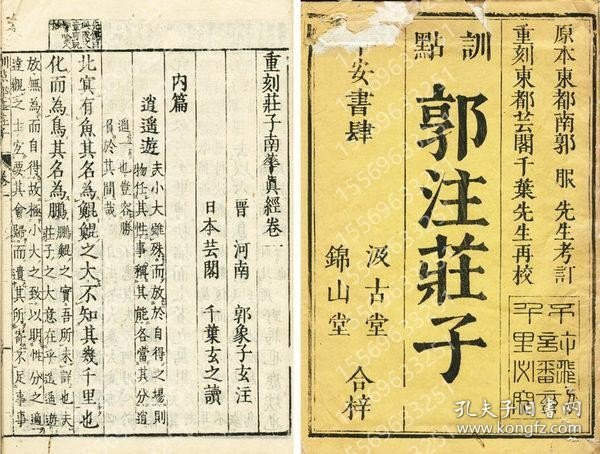 原本東都南郭 服 先生考訂
重刻東都芸閣千葉先生再校
訓點
郭注莊子
汲古堂
錦山堂
合梓
安書肆
重刻莊子南華真經卷一
晉 河南 郭象子玄注
日本芸閣 千葉玄之讀
內篇
逍遙遊
夫小大雖殊而放於自得之場則
物任其性事稱其能各當其分逍
遙一也豈容勝
負於其間哉
北冥有魚其名為鯤鯤之大不知其幾千里也
化而為鳥其名為鵬
鵬鯤之實吾所未詳也夫
莊子之大意在乎逍遙遊
放無為而自得故極小大之致以明性分之適
達觀之士宜要其會歸而遺其所寄不足事事
孔夫子旧书网